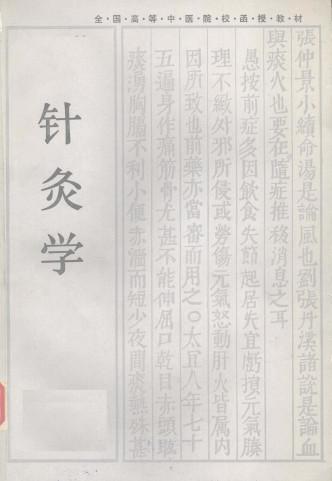 全·国·高·等·中·医·院·校·函·授·教·材
针灸学
張仲景小續命湯是論風也劉張丹溪諸說是論血
與痰火也要在隨症推移消息之耳
愚按前症多因飲食失節起居失宜虧損元氣腠
理不緻外邪所侵或勞傷元氣怒動肝火皆属内
因所致也前藥亦當審而用之〇太宜人年七十
五遍身作痛筋骨尤甚不能伸屈口乾目赤頭眩
痰湧胸膈不利小便赤澀而短少夜間痰熱殊甚